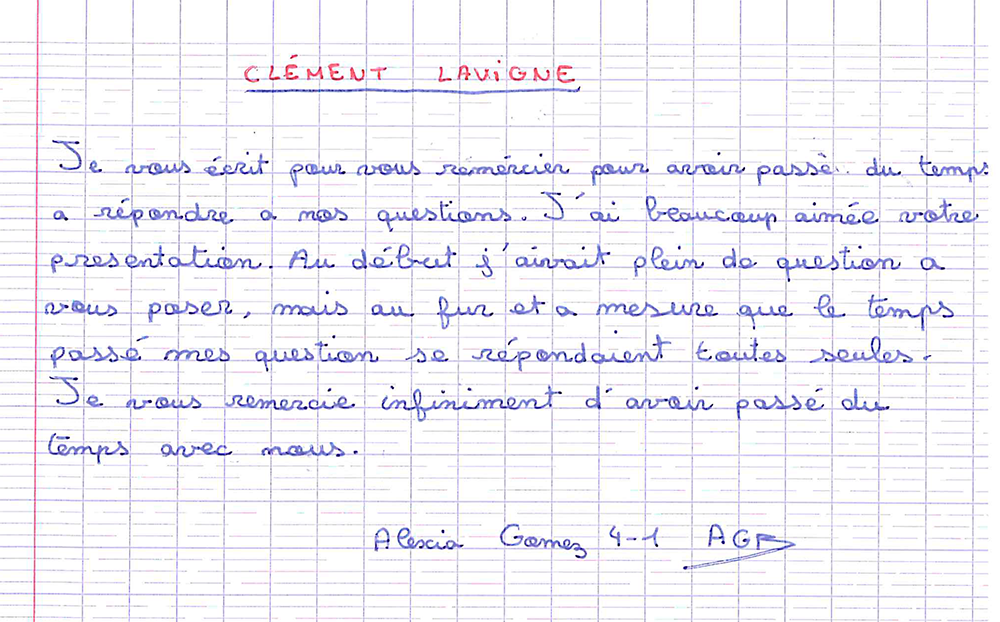 CLÉMENT LAVIGNE
Je vous écrit pour vous remércier pour avoir passé du temps
a répondre a nos questions. J'ai beaucoup aimée votre
presentation. Au début j'aivait plein de question a
vous poser, mais au fur et a mesure que le temps
passé mes question se répondaient toutes seules.
Je vous remercie infiniment d'avoir passé du
temps avec nous.
Alexia Gomez 4-1 AGF